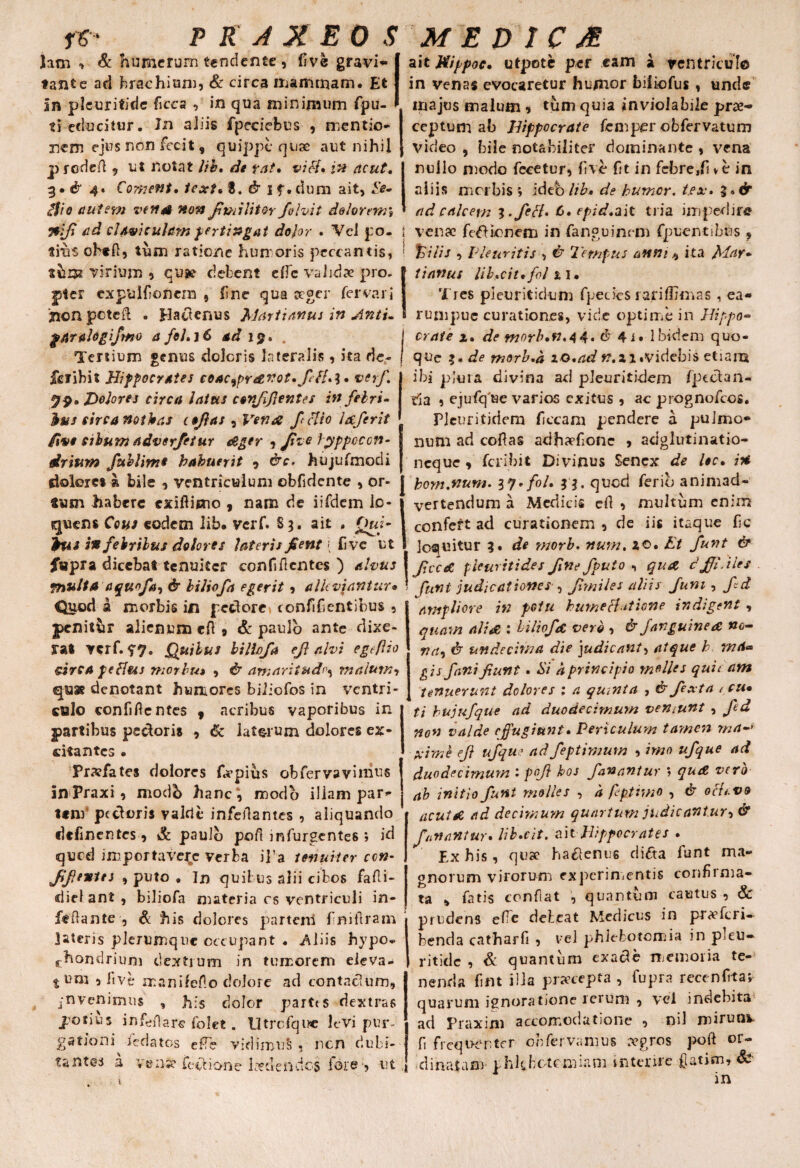 PRAXEOS MEDICÆ
lam , & humerum tendente , sivè gravi-
tante ad brachium, & circa mammam. Et
in pleuritide sicca , in qua minimum spu-
ti educitur. In aliis speciebus , mentio-
nem ejus non fecit , quippè quæ aut nihil
prodest , ut notat lib. de rat. vict. in acut.
3. & 4. Coment. text. 8. & 15. dum ait, Se-
ctio autem vena non similiter solvit dolorem;
nisi ad claviculam pertingat dolor . Vel po-
tiùs obest, tùm ratione humoris peccantis,
tùm virium , quæ debent esse validæ pro-
pter expulsionem , sine qua æger servari
non potest . Hactenus Martianus in Anti-
paralogismo a fol. 16 ad 19.
Tertium genus doloris lateralis , ita de-
scribit Hippocrates coac, prænot. sect. 3. vers.
99. Dolores circa latus consistentes in febri-
bus circa nothas costas , Venæ sectio læserit
sive cibum adversetur æger , sive hyppocon-
drium sublime habuerit , &c. hujusmodi
dolores à bile , ventriculum obsidente , or-
tum habere existimo , nam de iisdem lo-
quens Cous eodem lib. vers. 83. ait . Qui-
bus in febribus dolores lateris sient ; sive ut
supra dicebat tenuiter consistentes ) alvus
multa aquosa, & biliosa egerit , alleviantur.
Quod à morbis in pectore consistentibus ,
penitùr alienum est , & paulò ante dixe-
rat vers. 57. Quibus billosa est alvi egestio
circa pectus morbus , & amaritudo, malum,
quæ denotant humores biliosos in ventri-
culo consistentes , acribus vaporibus in
partibus pectoris , & laterum dolores ex-
citantes .
Præfates dolores sæpius observavimus
in Praxi , modò hanc , modò illam par-
tem pectoris valdè infestantes , aliquando
desinentes , & paulò post insurgentes ; id
quod importavere verba illa tenuiter con-
sistentes , puto . In quibus alii cibos fasti-
diebant , biliosa materia os ventriculi in-
festante , & his dolores parteni sinistram
lateris plerumque occupant . Aliis hypo-
chondrium dextrum in tumorem eleva-
tum , sivè manifesto dolore ad contactum,
invenimus , his dolor partes dextras
potiùs infestare solet . Utrosque levi pur-
gationi sedatos esse vidimus , non dubi-
tantes à venæ sectione lædendos fore , ut
ait Hippoc. utpotè per eam à ventriculo
in venas evocaretur humor biliosus , unde
majus malum , tùm quia inviolabile præ-
ceptum ab Hippocrate semper observatum
video , bile notabiliter dominante , vena
nullo modo secetur, sivè sit in febre, sivè in
aliis morbis ; ideò lib. de humor. tex. 3. &
ad calcem 3. sect. 6. epid. ait tria impedire
venæ sectionem in sanguinem spuentibus ,
Bilis , Pleuritis , & Tempus anni , ita Mar-
tianus lib. cit. fol 21.
Tres pleuritidum species rarissimas , ea-
rumpue curationes, vide optimè in Hippo-
crate 2. de morb. n. 44. & 41. Ibidem quo-
que 3. de morb. à 20. ad n. 22. videbis etiam
ibi plura divina ad pleuritidem spectan-
tia , ejusque varios exitus , ac prognoscos.
Pleuritidem siccam pendere à pulmo-
num ad costas adhæsione , adglutinatio-
neque , scribit Divinus Senex de loc. in
hom. num. 37. fol. 33. quod seriò animad-
vertendum à Medicis est , multùm enim
confert ad curationem , de iis itaque sic
loquitur 3. de morb. num. 20. Et sunt &
siccæ pleuritides sine sputo , quæ difficiles
sunt judicationes , similes aliis sunt , sed
ampliore in potu humectatione indigent ,
quam aliæ : biliosæ verò , & sanguineæ no-
na, & undecima die judicant, atque h ma-
gis sani fiunt . Si à principio molles quie am
tenuerunt dolores : a quinta , & sexta , cu-
ti hujusque ad duodecimum veniunt , sed
non valde effugiunt. Periculum tamen ma-
ximè est usque ad septimum , imo usque ad
duodecimum : post hos sanantur ; quæ verò
ab initio sunt molles , à septimo , & octavo
acutæ ad decimum quartum judicantur, &
sanantur. lib. cit. ait Hippocrates .
Ex his , quæ hactenus dicta sunt ma-
gnorum virorum experimentis confirma-
ta , satis constat , quantùm cautus , &
prudens esse debeat Medicus in præscri-
benda catharsi , vel phlebotomia in pleu-
ritide , & quantùm exactè memoria te-
nenda sint illa præcepta , supra recensita;
quarum ignoratione rerum , vel indebita
ad Praxim accomodatione , nil mirum
si frequenter observamus ægros post or-
dinatam phlebotomiam interire statim, &
in